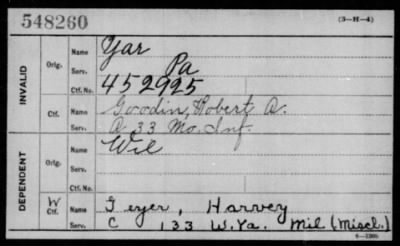 548260
(3-H-4)
INVALID
Orig.
Name
Yar
Serv.
Pa
Ctf. No.
452925
Ctf.
Name
Goodin, Robert A.
Serv.
A 33 Mo. Inf.
DEPENDENT
Orig.
Name
Wil
Serv.
Ctf. No.
W
Ctf.
Name
Geyer, Harvey
Serv.
C 133 W.Va. Mil (Miscl.)